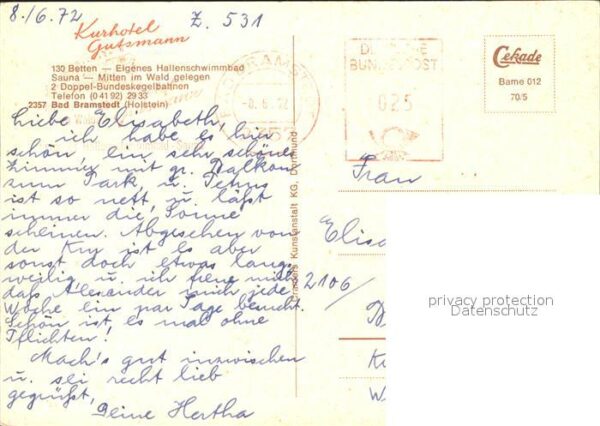 8./6.72
Z. 531
Kurhotel
Gutsmann
130 Betten — Eigenes Hallenschwimmbad
Sauna — Mitten im Wald gelegen
2 Doppel-Bundeskegelbahnen
Telefon (0 41 92) 29 33
2357 Bad Bramstedt (Holstein)
DEUTSCHE
BUNDESPOST
025
Cekade
Bame 012
70/5
Liebe Elisabeth,
ich habe es hier
schön, ein sehr schönes
Zimmer mit gr. Balkon
zum Park u.
ist so nett, u. läßt
immer die Sonne
scheinen. Abgesehen von
der Kur ist es aber
sonst doch etwas lang-
weilig u. ich freue mich
daß Alexander mich jede
Woche ein par Tage besucht.
Schön ist, es mal ohne
Pflichten!
Mach's gut inzwischen
u. sei recht lieb
gegrüßt,
Deine Hertha
Kunstanstalt KG, Dortmund
Frau
Elisa
2106/
privacy protection
Datenschutz